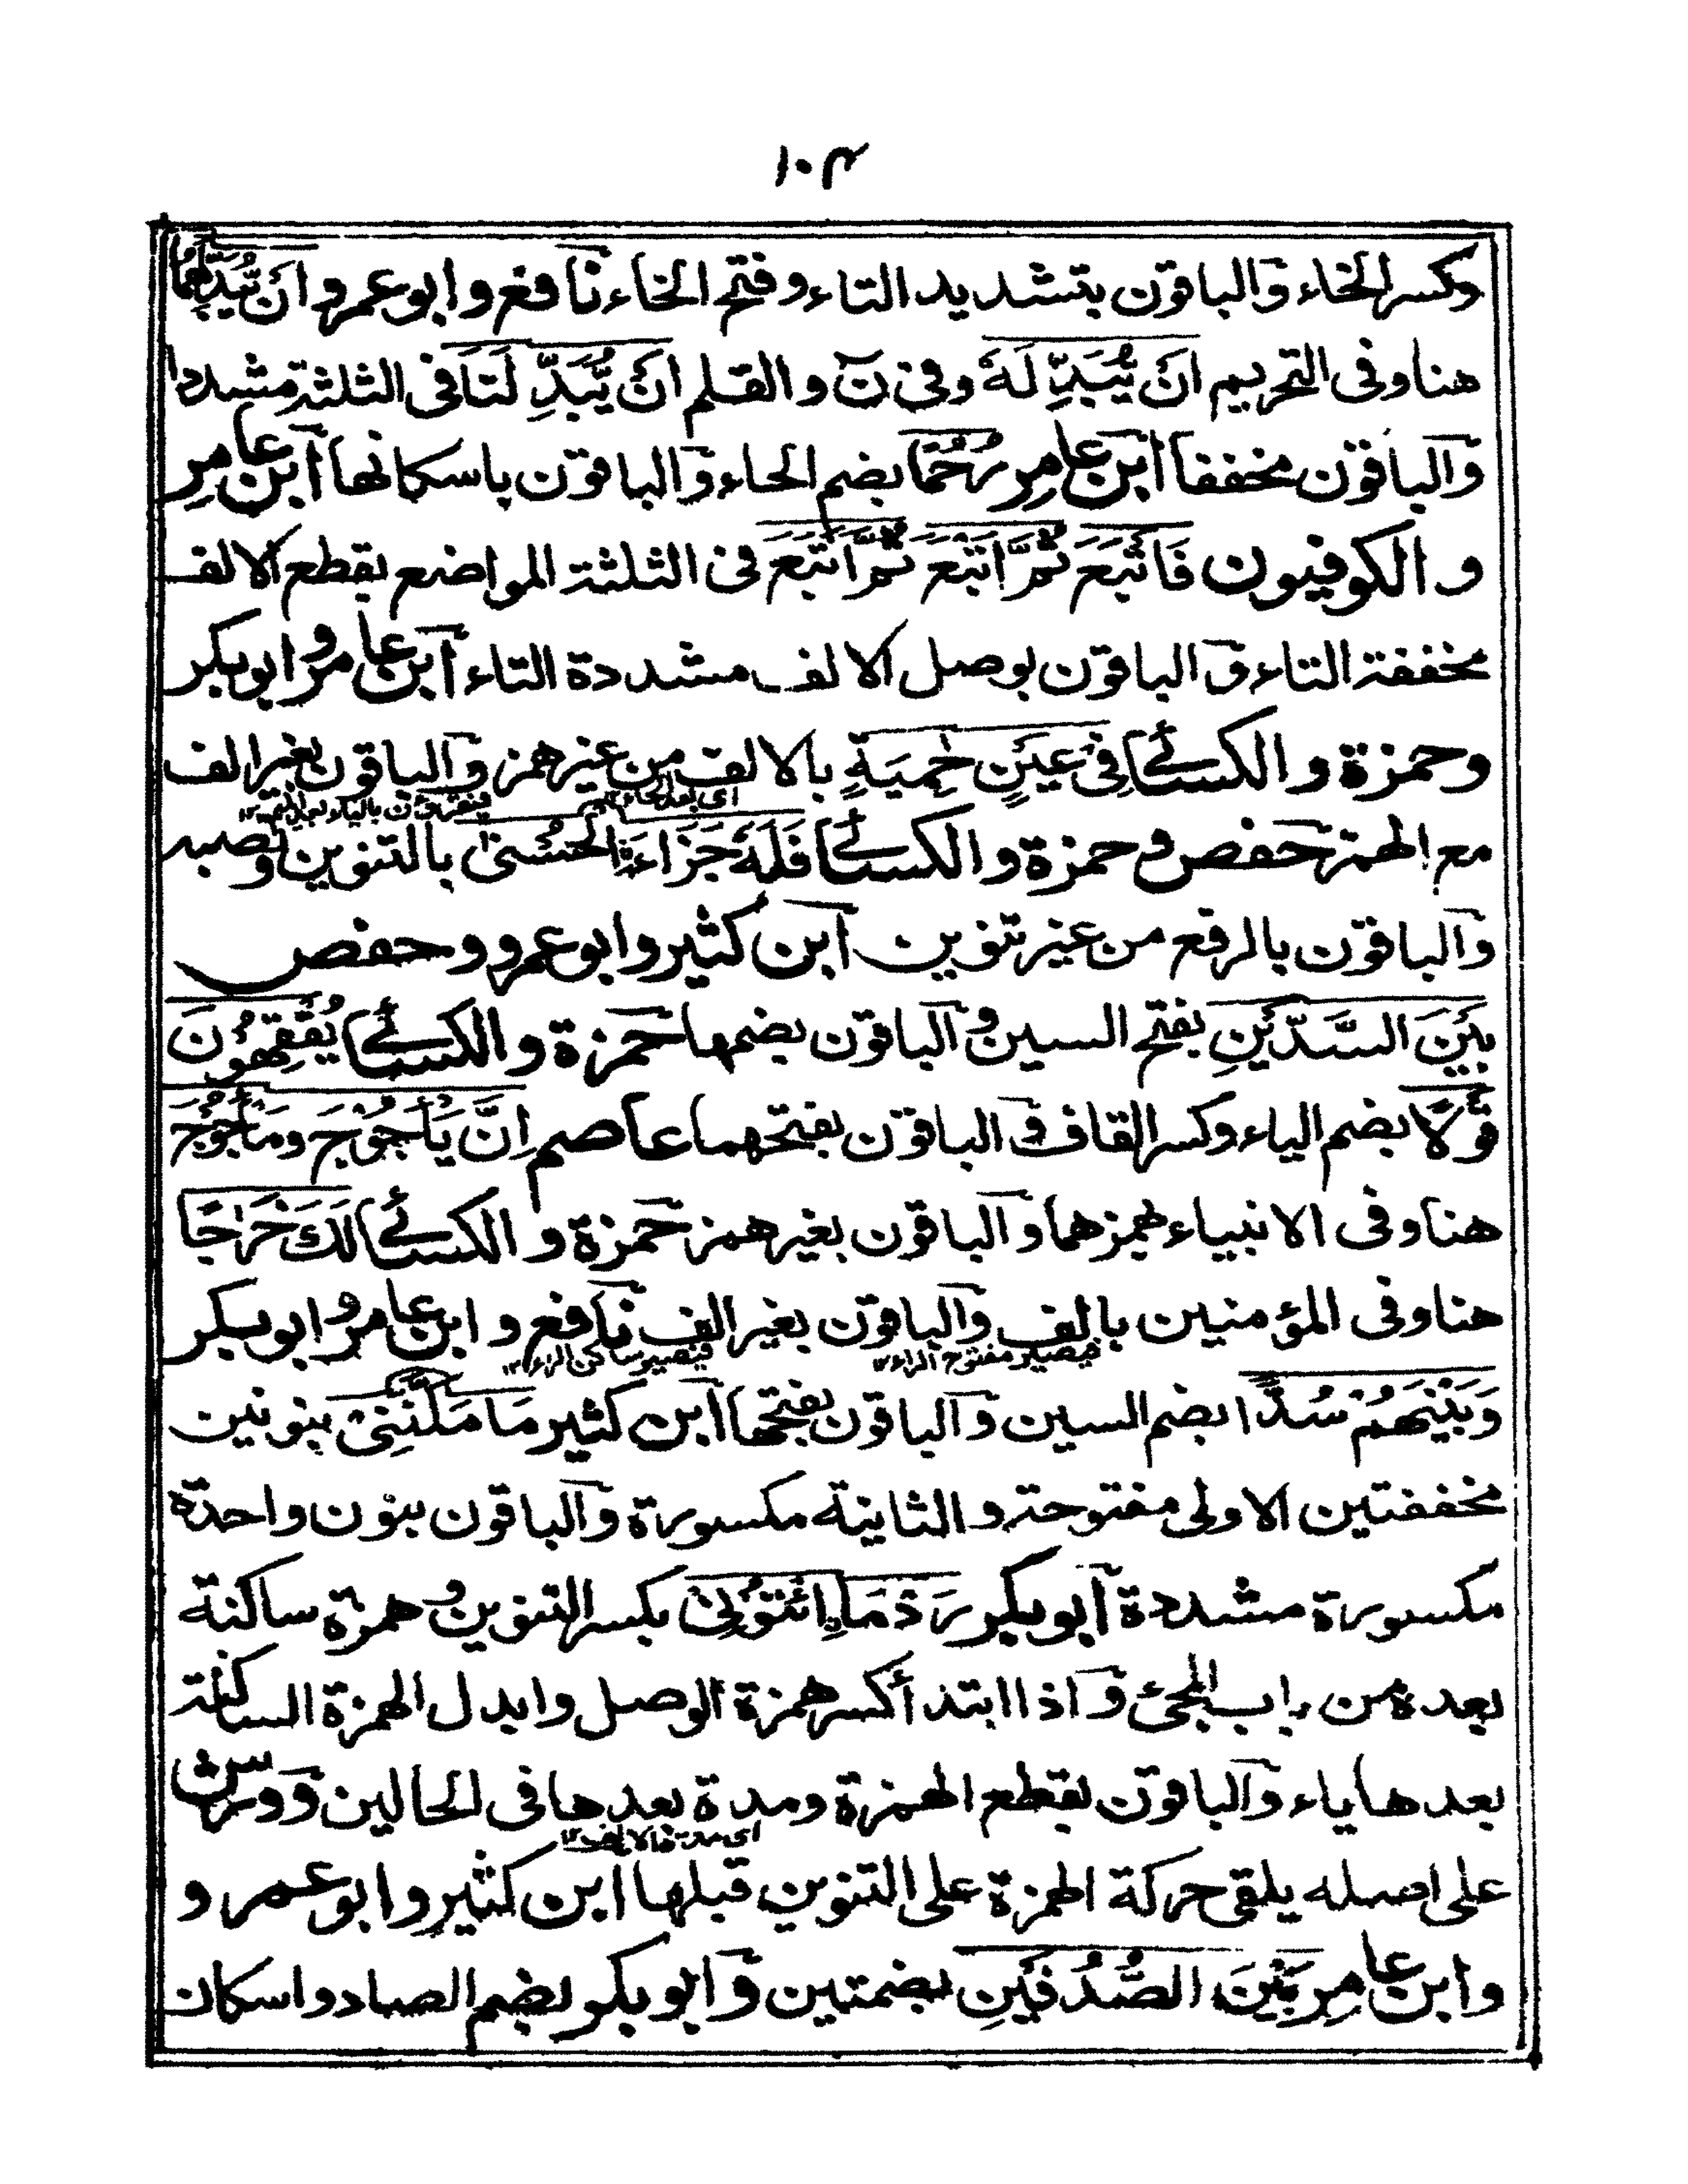 ١٠٤
وكسر الخاء والباقون بتشديد التاء وفتح الخاء نافع وابو عمرو اَنْ يُّبَدِّلَهُمَا
هنا وفى التحريم اَنْ يُّبَدِّ لَهٗ وفى نٓ والقلم اَنْ يُّبَدِّ لَنَا فى الثلثة مشددا
والباقون مخففا ابن عامر رُحُمًا بضم الحاء والباقون باسكانها ابن عامر
و الكوفيون فَاَتْبَعَ ثُمَّ اَتْبَعَ ثُمَّ اَتْبَعَ فى الثلثة المواضع بقطع الالف
مخففة التاء و الباقون بوصل الالف مشددة التاء ابن عامر و ابوبكر
وحمزة و الكسائے فِىْ عَيْنٍ حٰمِيَةٍ بالالف من غير همز والباقون بغير الف
اى بعد الحاء ١٢
فيقرؤن بالياء بعد الميم ١٢
مع الهمزة حفص و حمزة و الكسائے فَلَهٗ جَزَاءً اِلْحُسْنٰى بالتنوين ونصبه
والباقون بالرفع من غير تنوين ابن كثير وابو عمرو و حفص
بَيْنَ السَّدَّيْنِ بفتح السين و الباقون بضمها حمزة و الكسائے يُفْقِهُوْنَ
قَوْلًا بضم الياء وكسر القاف و الباقون بفتحهما عاصم اِنَّ يَأْجُوْجَ وَمَأْجُوْجَ
هنا وفى الانبياء بهمزهما و الباقون بغير همز حمزة و الكسائے لَكَ خَرَاجًا
هنا وفى المؤمنين بالف والباقون بغير الف نافع و ابن عامر و ابوبكر
فيصير مفتوح الراء ١٢
فيصير ساكن الراء ١٢
وَبَيْنَهُمْ سُدًّا بضم السين والباقون بفتحها ابن كثير مَا مَكَّنَنِىْ بنونين
مخففتين الاولى مفتوحة و الثانية مكسورة والباقون بنون واحدة
مكسورة مشددة ابوبكر رَدْمَاِۨ ائْتُوْنِىْ بكسر التنوين و همزة ساكنة
بعده من باب المجئ و اذا ابتدأ كسر همزة الوصل وابدل الهمزة الساكنة
بعدها ياء والباقون بقطع الهمزة ومدة بعدها فى الحالين و ورش
اى مدة فالالف ١٢
على اصله يلقى حركة الهمزة على التنوين قبلها ابن كثير وابو عمرو و
وابن عامر بَيْنَ الصُّدُفَيْنِ بضمتين و ابوبكر بضم الصاد واسكان